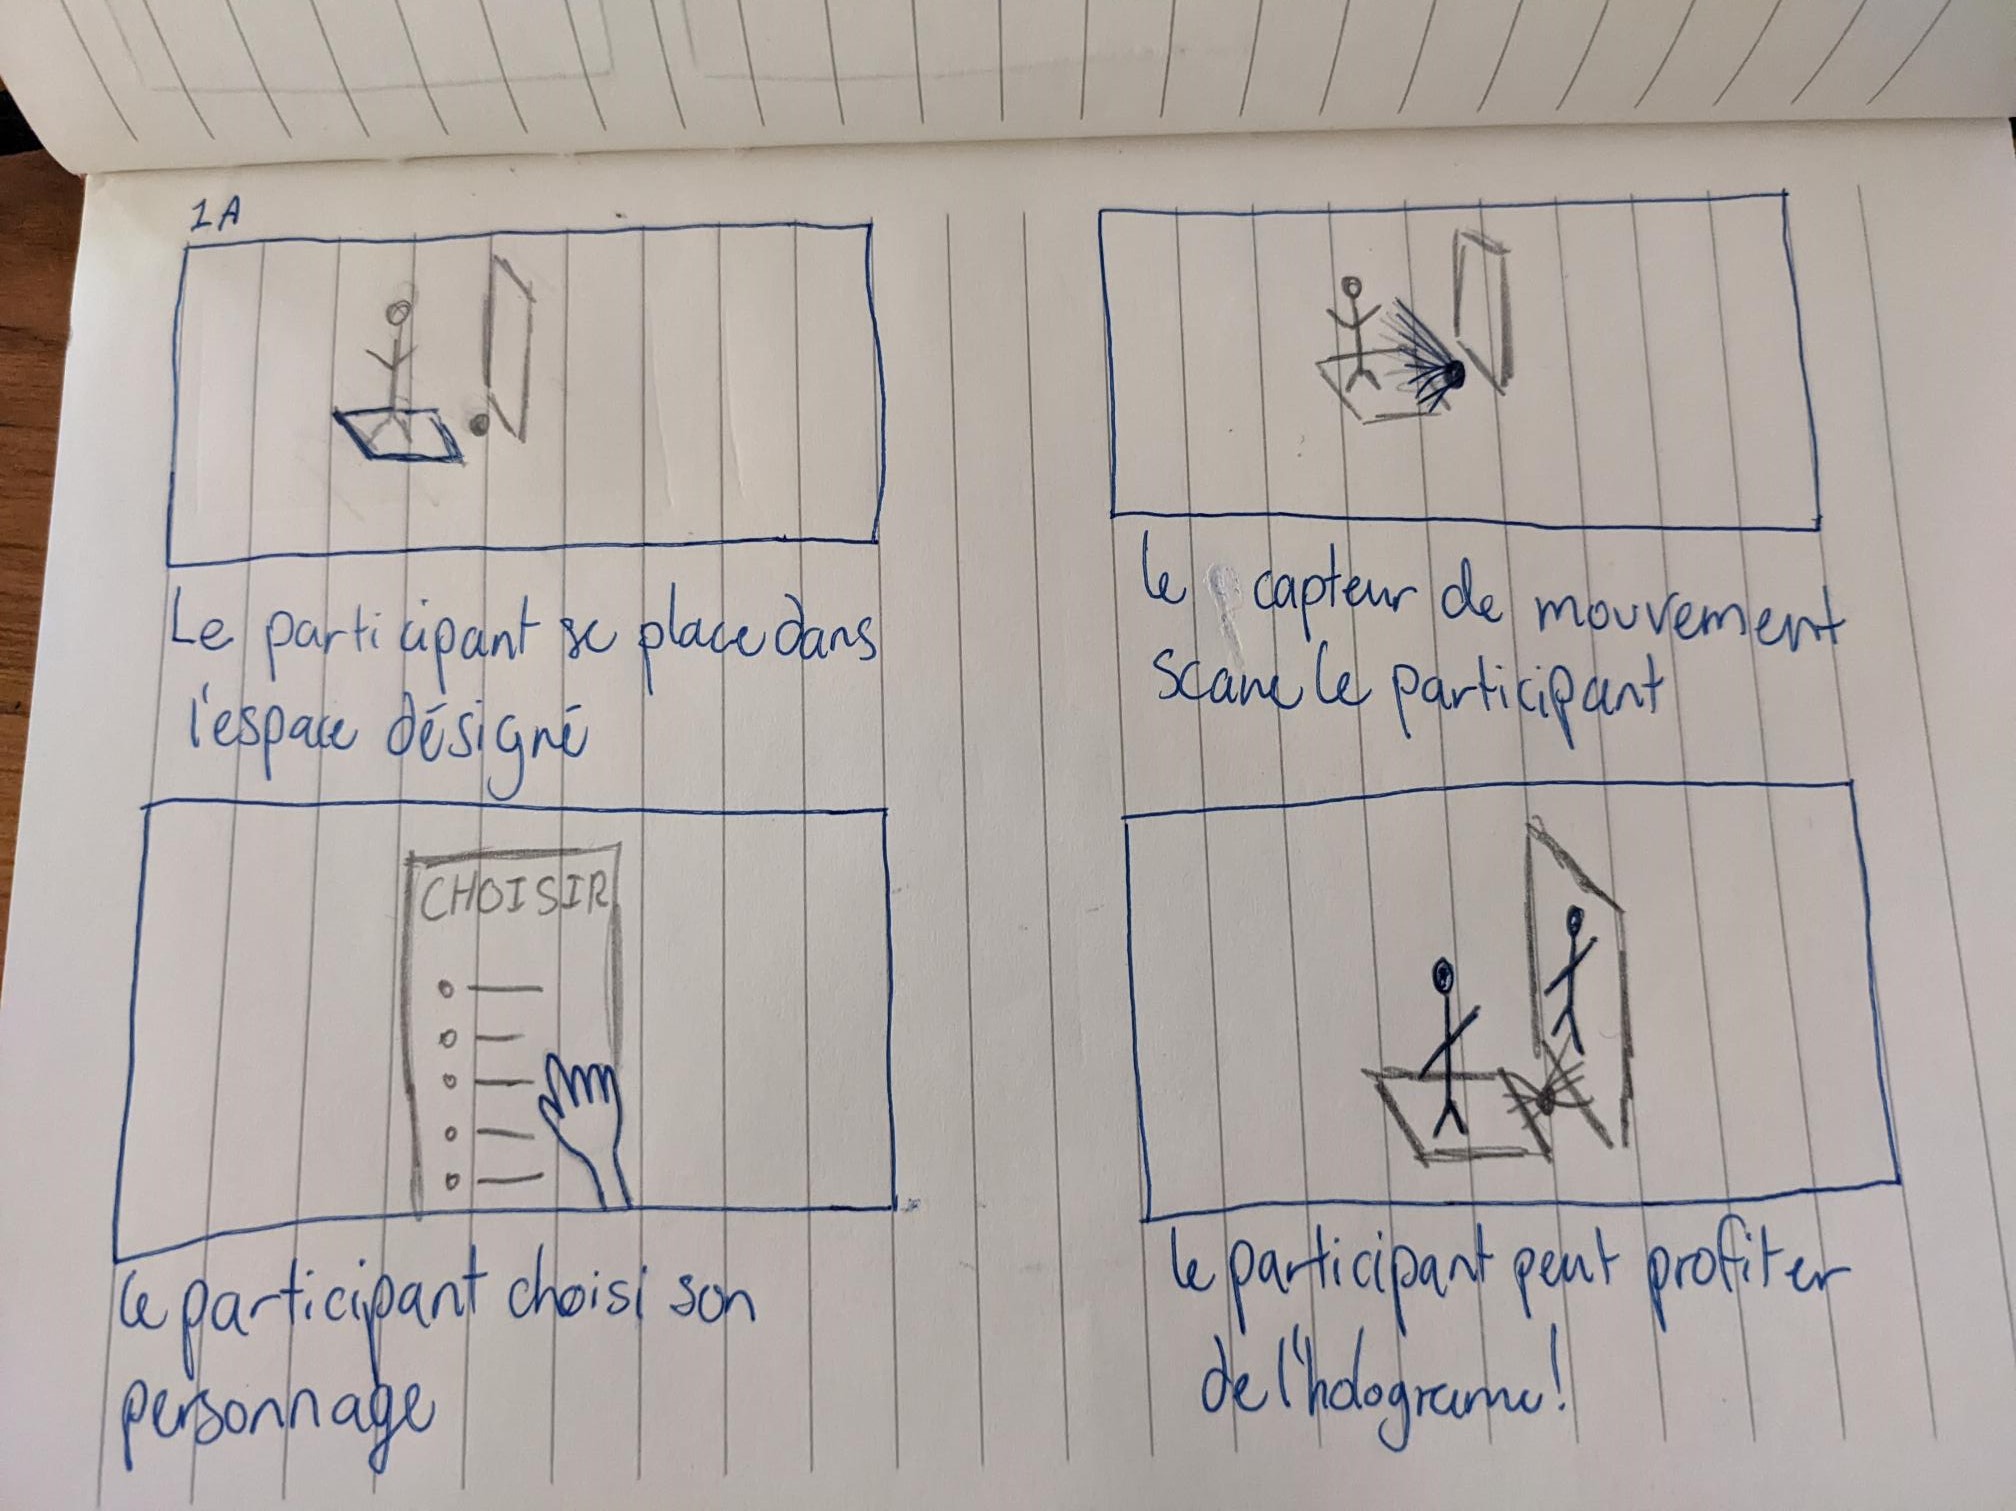 1A
Le participant se place dans
l'espace désigné
le capteur de mouvement
scane le participant
CHOISIR
le participant choisi son
personnage
le participant peut profiter
de l'holograme!